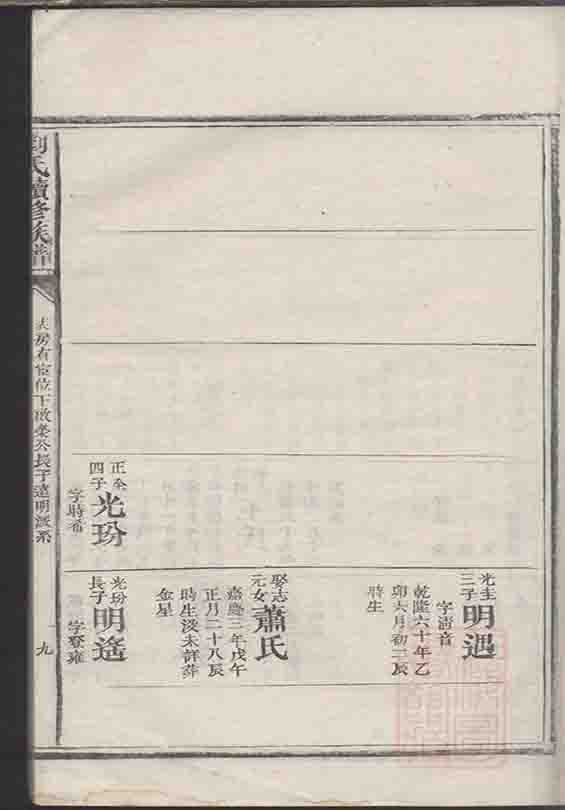 光圭
三子
明遇
字清音
乾隆六十年乙
卯六月初二辰
時生
娶志
元女
蕭氏
嘉慶三年戊午
正月二十八辰
時生沒未詳葬
金星
正全
四子
光玢
字時希
光玢
長子
明遙
字登雍
劉氏續修族譜
房有宦位下啟
公長子遠明派系
九